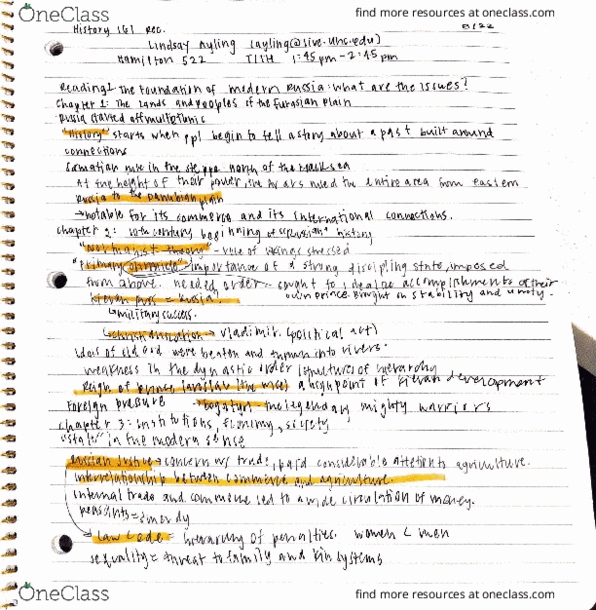 OneClass
find more resources at oneclass.com
History 161 Rec.
8/22
Lindsay Ayling (ayling@live.unc.edu)
Hamilton 522 T/TH 1:45pm-2:45pm
Reading 1: The foundation of modern Russia: what are the issues?
Chapter 1: The Lands and Peoples of the Eurasian Plain
Russia started off multiethnic
"History" starts when ppl begin to tell a story about a past built around
connections
Sarmatian rule in the steppe north of the Black Sea
At the height of their power, the ruled the entire area from eastern
Russia to the plain
→ notable for its commerce and its international connections.
Chapter 2: 10th century beginning of "Russian" history
"Normanist theory" - role of vikings stressed
"Primary chronicle" importance of a strong discipling state, imposed
from above. needed order - sought to idealize accomplishments of their
own prince. Brought on stability and unity.
Kievan Rus = Russia
↳ military success.
Christianization → Vladimir (political act)
Idols of old God were beaten and thrown into rivers.
weakness in the dynastic order (structures of hierarchy
Reign of Prince Iaroslav (the wise) a high point of Kievan development
Foreign pressure bogatyri - the legendary mighty warriors
Chapter 3: institutions, economy, society
"state" in the modern sense
Russian Justice → concern w/ trade, paid considerable attention to agriculture.
interrelationship between commerce and agriculture
internal trade and commerce led to a wide circulation of money.
peasants = smerdy
→ Law code = hierarchy of penalties. women < men
sexuality = threat to family and kin systems
OneClass
find more resources at oneclass.com